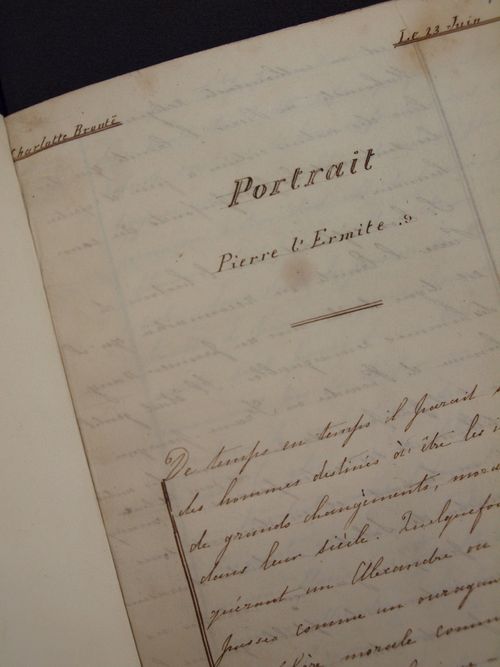 Charlotte Brontë
Le 23 Juin
Portrait
Pierre l'Ermite.
De temps en temps il parait
des hommes destinés à être les
de grands changements, mor
dans leur siècle. Quelquefoi
quérant un Alexandre ou
passe comme un ouragan
morale comm